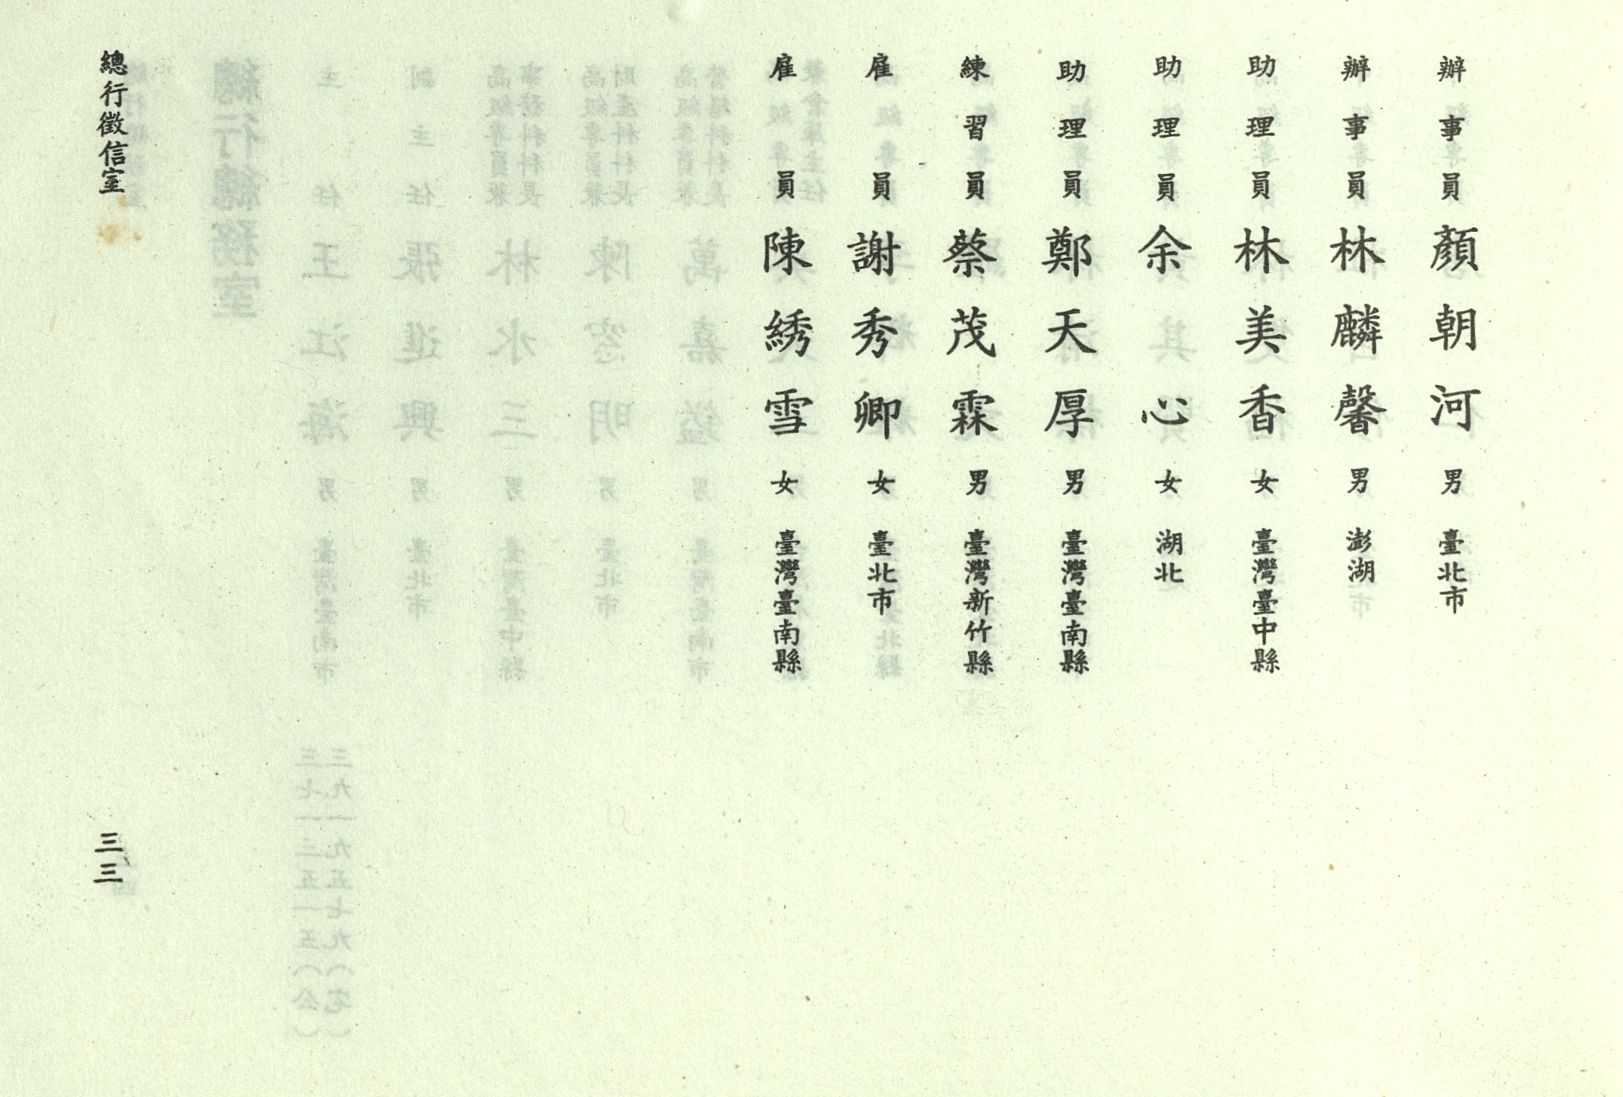 辦事員 顏朝河 男 臺北市
辦事員 林麟馨 男 澎湖
助理員 林美香 女 臺灣臺中縣
助理員 余心 女 湖北
助理員 鄭天厚 男 臺灣臺南縣
練習員 蔡茂霖 男 臺灣新竹縣
雇員 謝秀卿 女 臺北市
雇員 陳綉雪 女 臺灣臺南縣
總行徵信室
三三